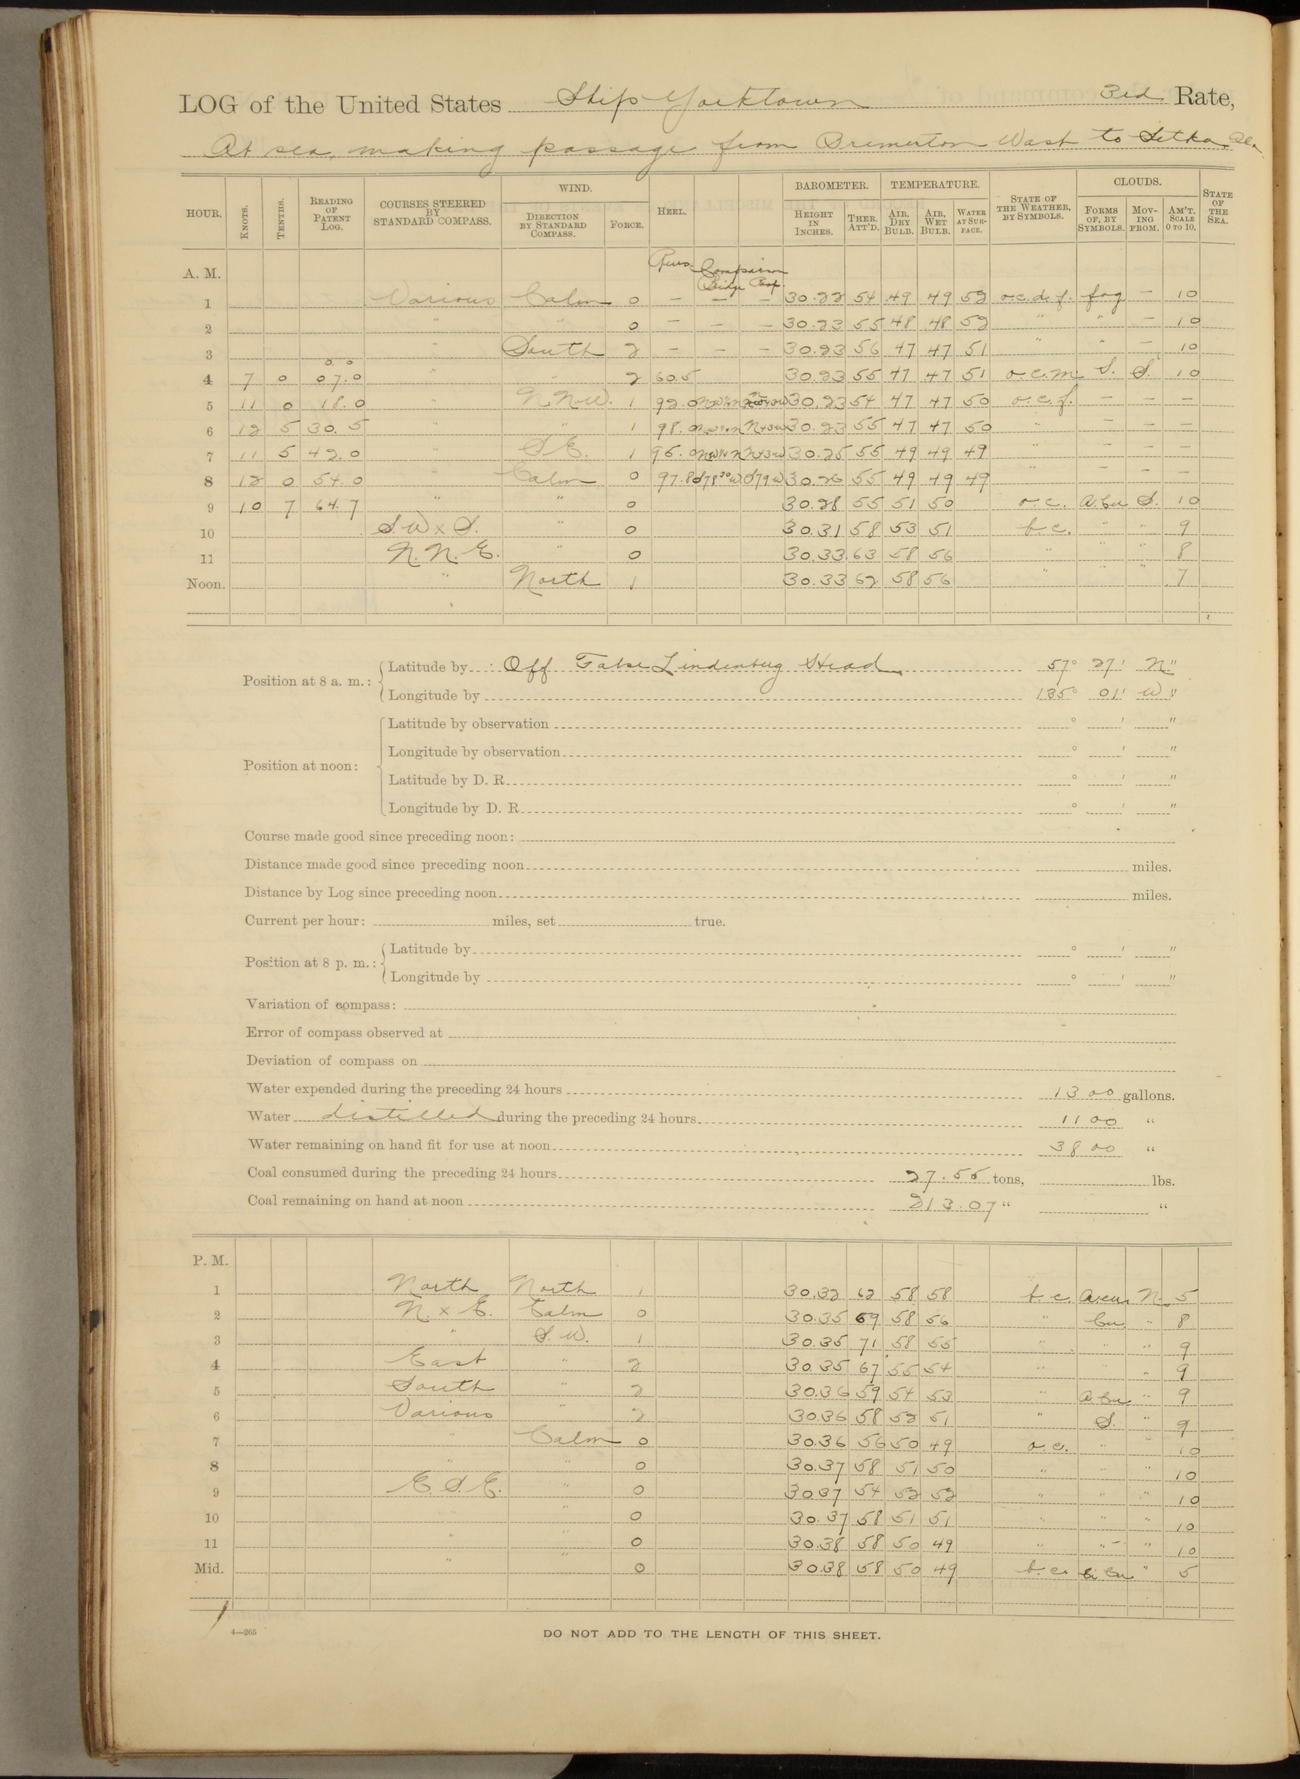 LOG of the United States Ship Yorktown 3rd Rate,
At sea, making passage from Bremerton Wash to Sitka, Ala.
HOUR. KNOTS. TENTHS. READING OF PATENT LOG. COURSES STEERED BY STANDARD COMPASS. WIND. DIRECTION BY STANDARD COMPASS. FORCE. HEEL. BAROMETER. HEIGHT IN INCHES. THER. ATT'D. TEMPERATURE. AIR, DRY BULB. AIR, WET BULB. WATER AT SURFACE. STATE OF THE WEATHER, BY SYMBOLS. CLOUDS. FORMS OF, BY SYMBOLS. MOVING FROM. AM'T. SCALE 0 TO 10. STATE OF THE SEA.
A. M. Revs. Comparison Bridge
1 Various Calm 0 — — — 30.22 54 49 49 52 o.c.d.f. fog — 10
2 " " 0 — — — 30.23 55 48 48 52 " " — 10
3 " South 2 — — — 30.23 56 47 47 51 " " — 10
0.0
4 7 0 07.0 " " 2 60.5 30.23 55 47 47 51 o.c.m. S. S. 10
5 11 0 18.0 " N.N.W. 1 92.0 30.23 54 47 47 50 o.c.f. — — —
6 12 5 30.5 " " 1 98.0 30.23 55 47 47 50 " — — —
7 11 5 42.0 " S.E. 1 95.0 30.25 55 49 49 49 " — — —
8 12 0 54.0 " Calm 0 97.8 30.26 55 49 49 49 " — — —
9 10 7 64.7 " " 0 30.28 55 51 50 o.c. A.Cu S. 10
10 S.W x S. " 0 30.31 58 53 51 b.c. " " 9
11 N.N.E. " 0 30.33 63 58 56 " " " 8
Noon. " North 1 30.33 62 58 56 " " " 7
Position at 8 a. m.: Latitude by : Off False Lindenburg Head 57° 27' N "
Longitude by 135° 01' W "
Position at noon: Latitude by observation ° ' "
Longitude by observation ° ' "
Latitude by D. R. ° ' "
Longitude by D. R. ° ' "
Course made good since preceding noon:
Distance made good since preceding noon miles.
Distance by Log since preceding noon miles.
Current per hour: miles, set true.
Position at 8 p. m.: Latitude by ° ' "
Longitude by ° ' "
Variation of compass:
Error of compass observed at
Deviation of compass on
Water expended during the preceding 24 hours 1300 gallons.
Water distilled during the preceding 24 hours 1100 "
Water remaining on hand fit for use at noon 3800 "
Coal consumed during the preceding 24 hours 27.55 tons, lbs.
Coal remaining on hand at noon 213.07 " "
P. M.
1 North North 1 30.32 62 58 58 b.c. A.cu. N. 5
2 N. x E. Calm 0 30.35 69 58 56 " Cu. " 8
3 " S.W. 1 30.35 71 58 55 " " " 9
4 East " 2 30.35 67 55 54 " " " 9
5 South " 2 30.36 59 54 53 " A.Cu. " 9
6 Various " 2 30.36 58 52 51 " S. " 9
7 " Calm 0 30.36 56 50 49 o.c. " " 10
8 " " 0 30.37 58 51 50 " " " 10
9 E.S.E. " 0 30.37 54 52 52 " " " 10
10 " " 0 30.37 58 51 51 " " " 10
11 " " 0 30.38 58 50 49 " " " 10
Mid. " 0 30.38 58 50 49 b.c. " 5
4—265
DO NOT ADD TO THE LENGTH OF THIS SHEET.